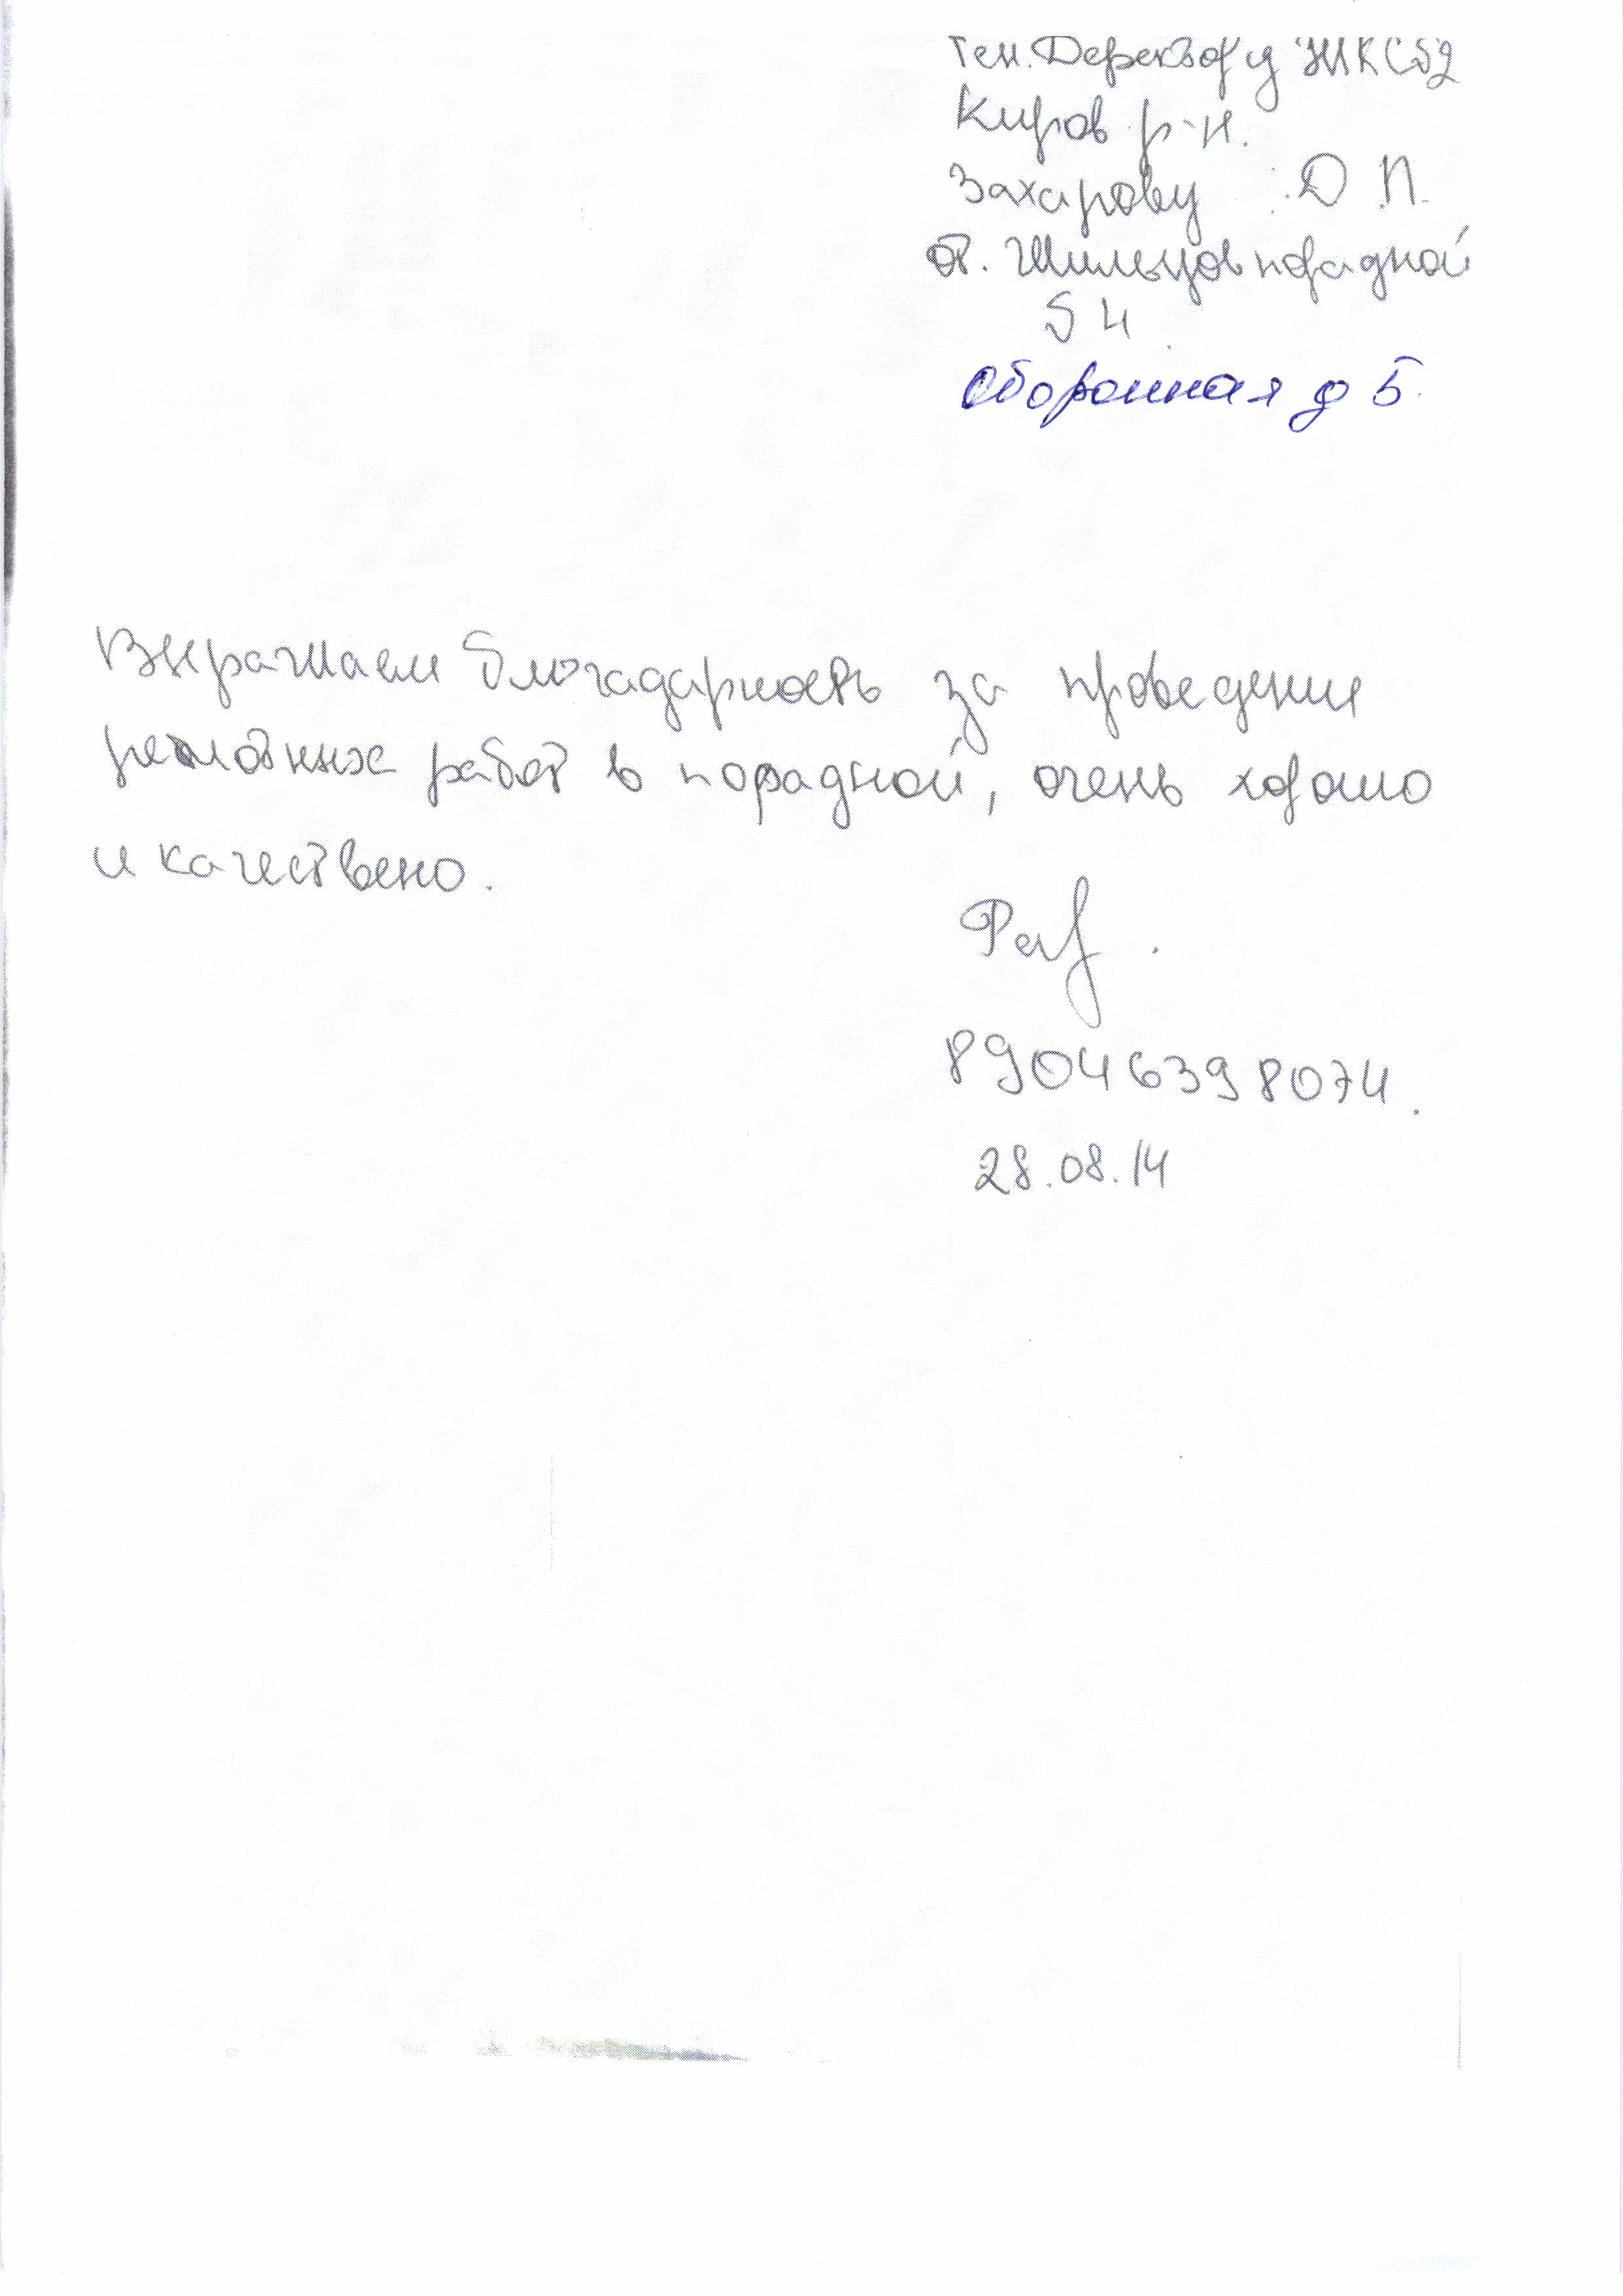 Ген. Деректору ЖКС №2
Киров р-н.
Захарову Д П.
от. Жильцов порадной
№ 4
Оборонная д 5.
Выражаем благодарность за проведения
ремотных работ в порадной, очень хорошо
и качествено.
89046398074.
28.08.14